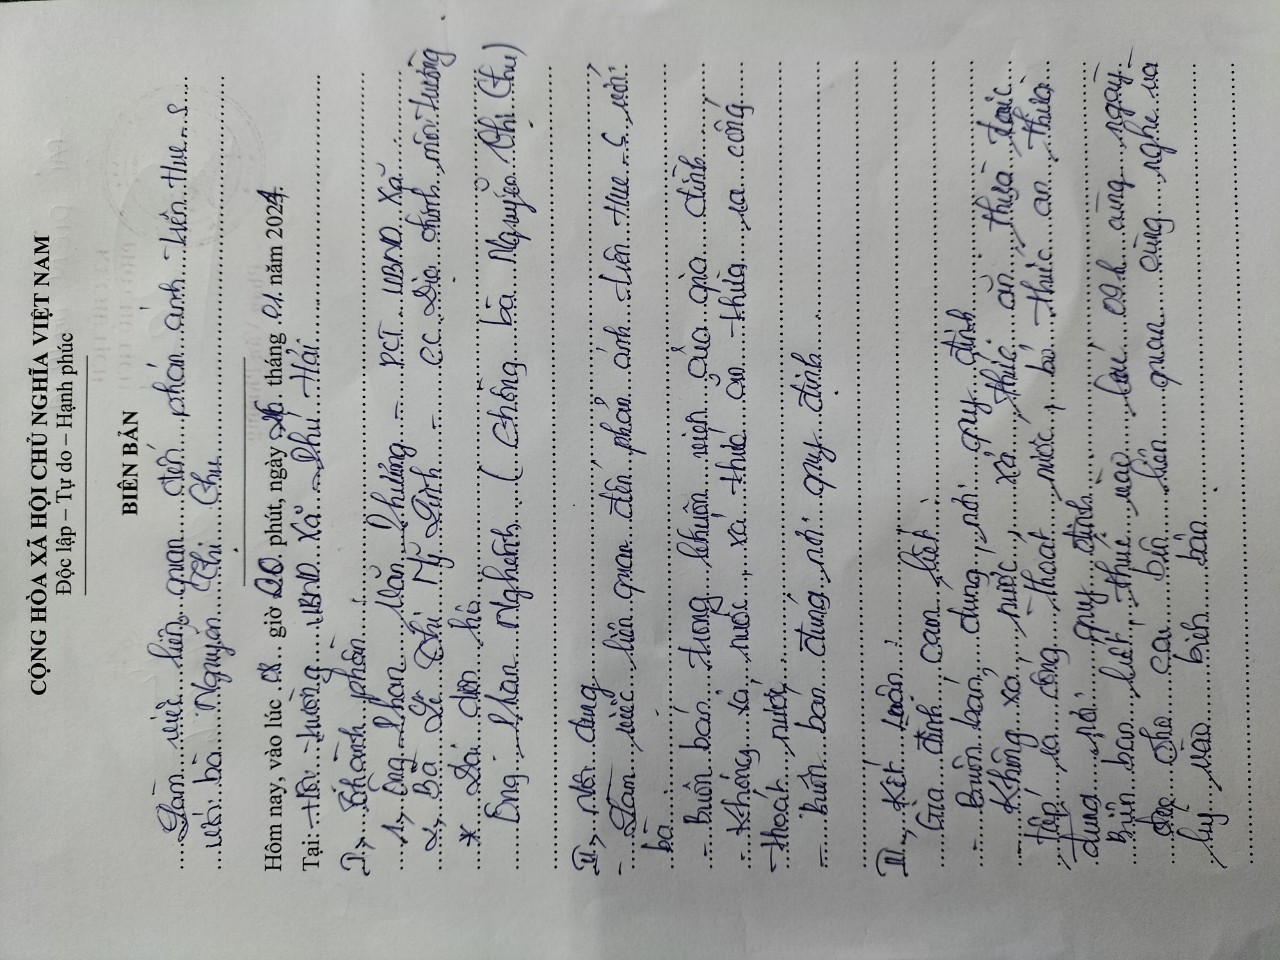 CỘNG HÒA XÃ HỘI CHỦ NGHĨA VIỆT NAM
Độc lập – Tự do – Hạnh phúc
BIÊN BẢN
Làm việc liên quan đến phản ánh trên Hue-S
với bà Nguyễn Thị Thu
Hôm nay, vào lúc 08 giờ 00 phút, ngày 26 tháng 01 năm 2024.
Tại: Hội trường UBND xã Phú Hải
I, Thành phần:
1, Ông Phan Văn Phương - PCT UBND Xã
2, Bà Lê Thị Mỹ Linh - CC Địa chính môi trường
* Đại diện hộ
Ông Phan Nghênh (chồng bà Nguyễn Thị Thu)
II, Nội dung
- Làm việc liên quan đến phản ánh trên Hue-S với
bà
- Buôn bán trong khuôn viên của gia đình
- Không xả nước, xả thức ăn thừa ra cống
thoát nước
- Buôn bán đúng nơi quy định
III, Kết luận:
Gia đình cam kết:
- Buôn bán đúng nơi quy định
- Không xả nước, xả thức ăn thừa trực
tiếp ra cống thoát nước, bỏ thức ăn thừa
đúng nơi quy định
Biên bản kết thúc vào lúc 09h cùng ngày
đọc cho các bên liên quan cùng nghe và
ký vào biên bản